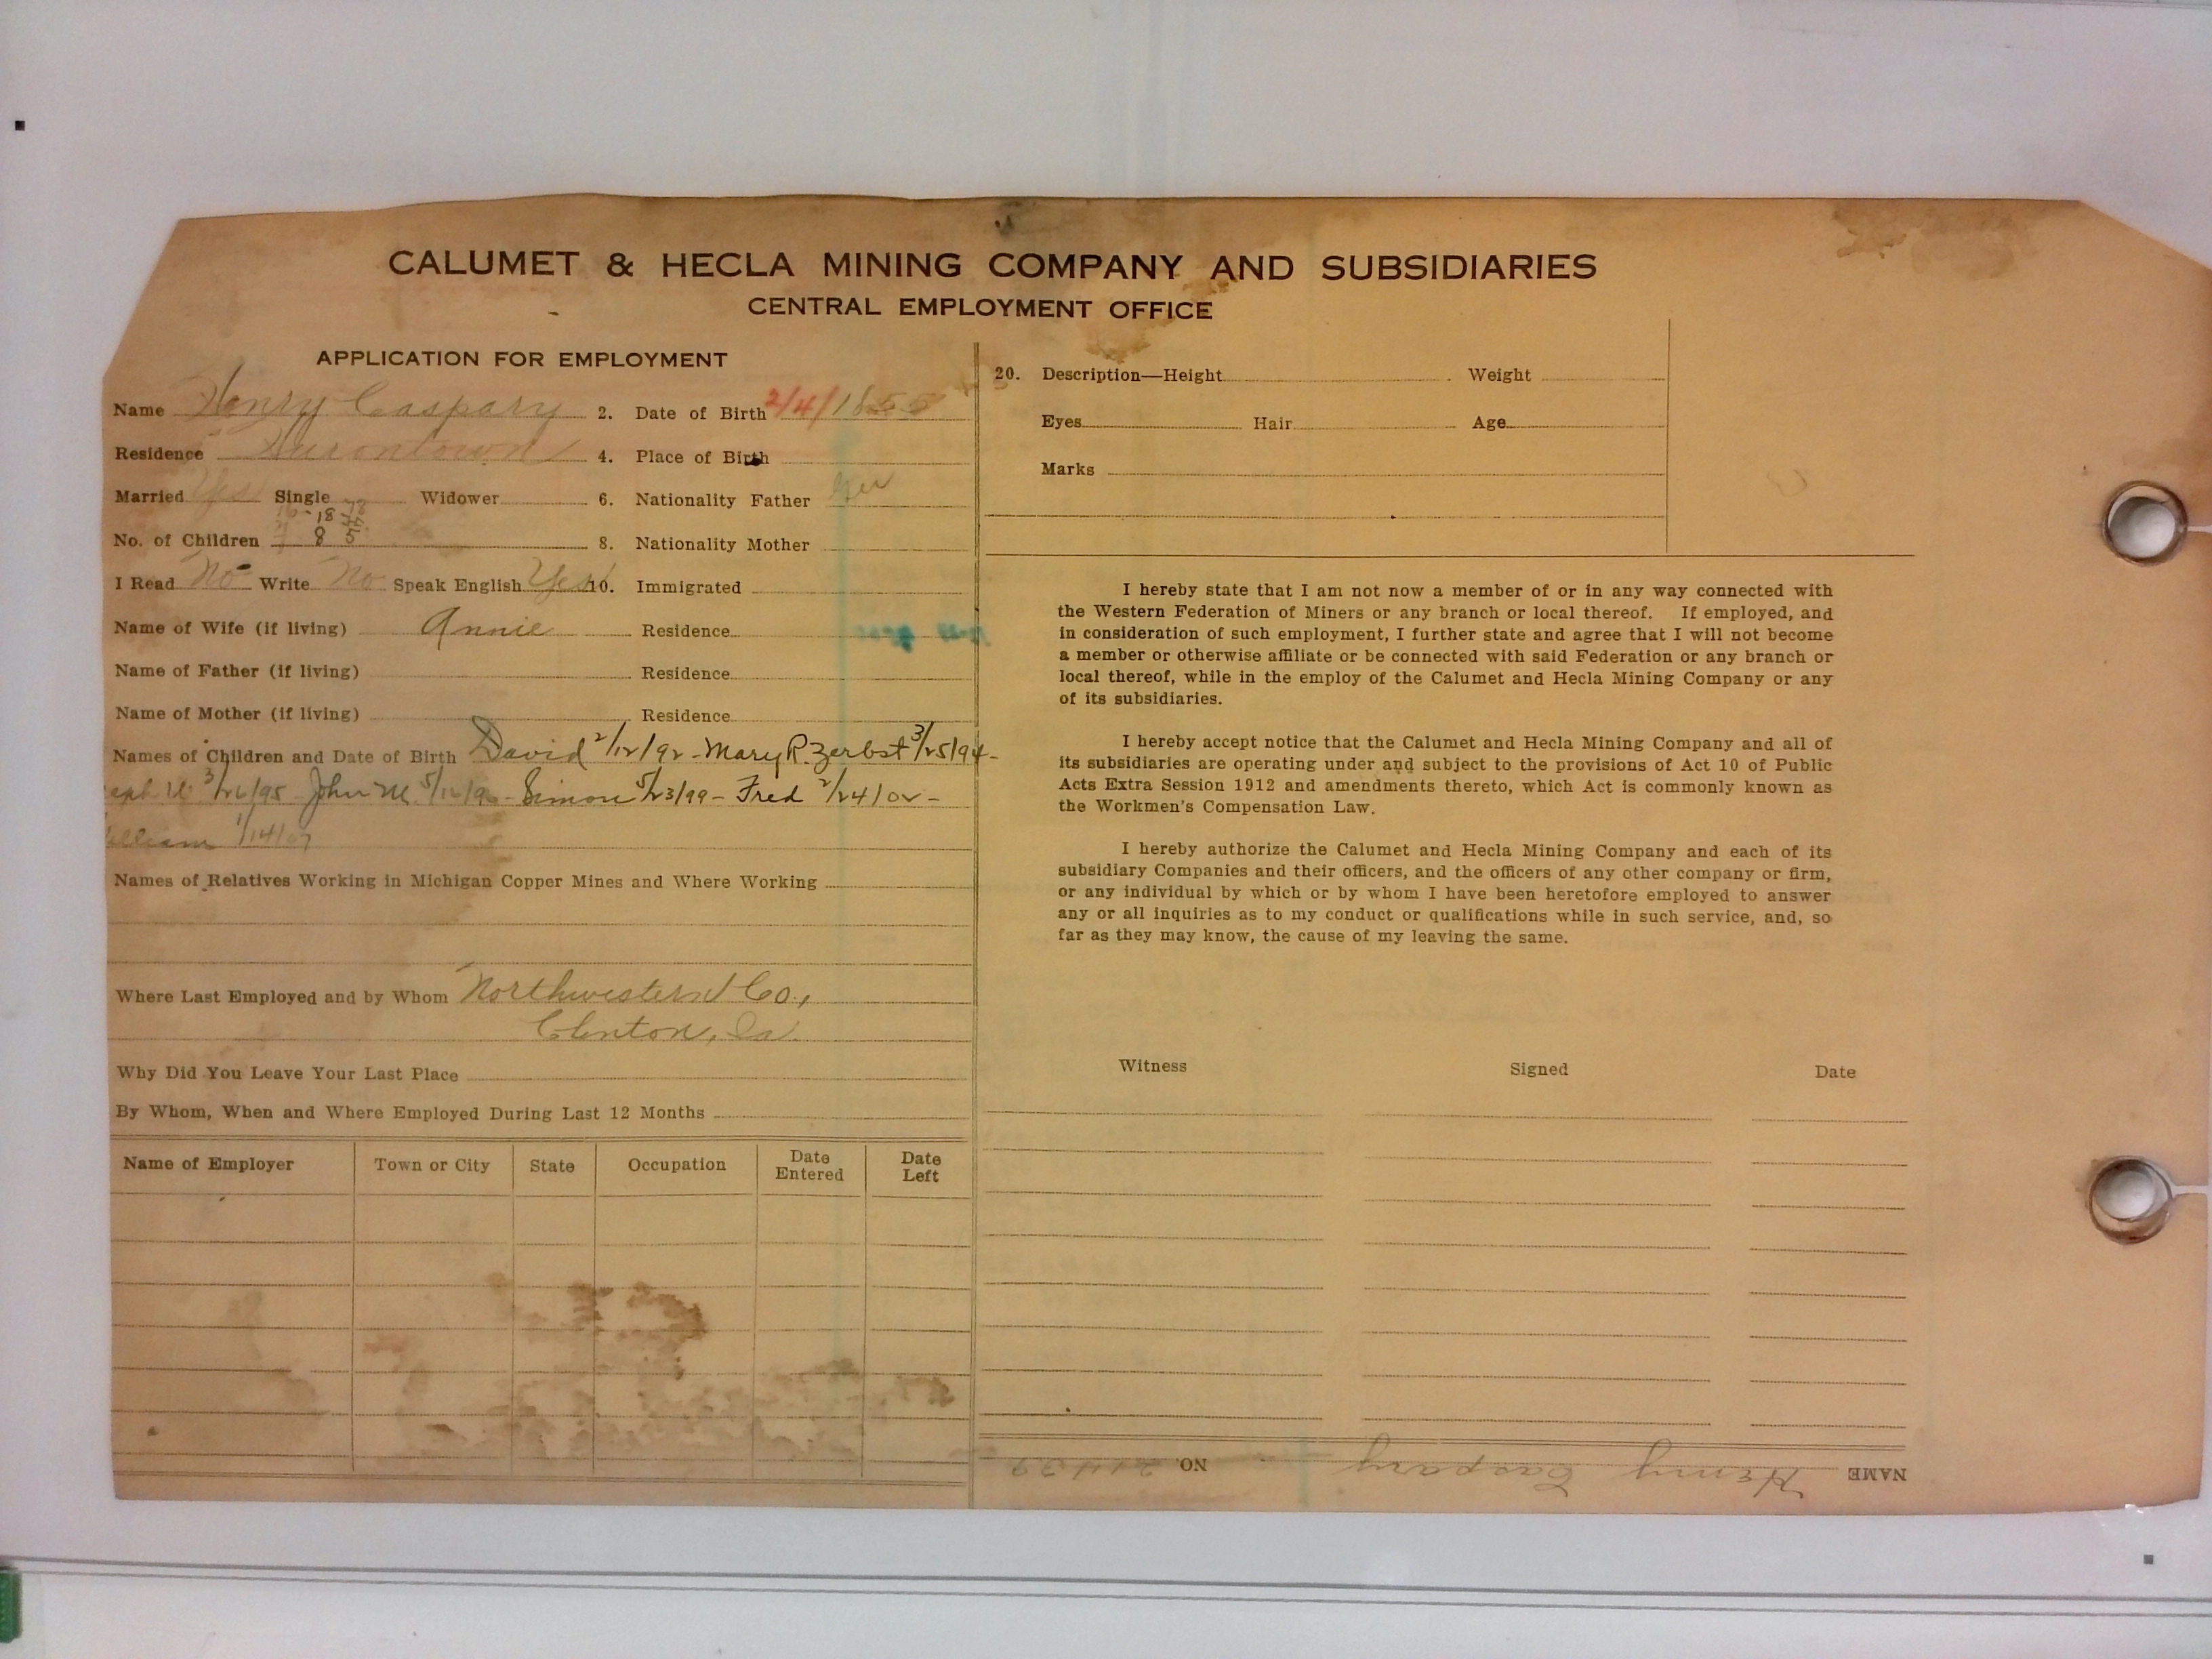 CALUMET & HECLA MINING COMPANY AND SUBSIDIARIES
CENTRAL EMPLOYMENT OFFICE
APPLICATION FOR EMPLOYMENT
Name Henry Caspary 2. Date of Birth 2/4/1855
Residence Hurontown 4. Place of Birth
Married Yes Single Widower 6. Nationality Father Ger
18
No. of Children 8 5 8. Nationality Mother
I Read No Write No Speak English Yes 10. Immigrated
Name of Wife (if living) Annie Residence
Name of Father (if living) Residence
Name of Mother (if living) Residence
Names of Children and Date of Birth David 2/12/92 - Mary R. Zerbst 3/25/94 -
John M. - Simon 5/23/99 - Fred 2/24/02 -
William 1/14/07
Names of Relatives Working in Michigan Copper Mines and Where Working
Where Last Employed and by Whom Northwestern Co.,
Clinton, Ia.
Why Did You Leave Your Last Place
By Whom, When and Where Employed During Last 12 Months
Name of Employer Town or City State Occupation Date Entered Date Left
20. Description—Height Weight
Eyes Hair Age
Marks
I hereby state that I am not now a member of or in any way connected with
the Western Federation of Miners or any branch or local thereof. If employed, and
in consideration of such employment, I further state and agree that I will not become
a member or otherwise affiliate or be connected with said Federation or any branch or
local thereof, while in the employ of the Calumet and Hecla Mining Company or any
of its subsidiaries.
I hereby accept notice that the Calumet and Hecla Mining Company and all of
its subsidiaries are operating under and subject to the provisions of Act 10 of Public
Acts Extra Session 1912 and amendments thereto, which Act is commonly known as
the Workmen's Compensation Law.
I hereby authorize the Calumet and Hecla Mining Company and each of its
subsidiary Companies and their officers, and the officers of any other company or firm,
or any individual by which or by whom I have been heretofore employed to answer
any or all inquiries as to my conduct or qualifications while in such service, and, so
far as they may know, the cause of my leaving the same.
Witness Signed Date
NAME Henry Caspary NO. 21439